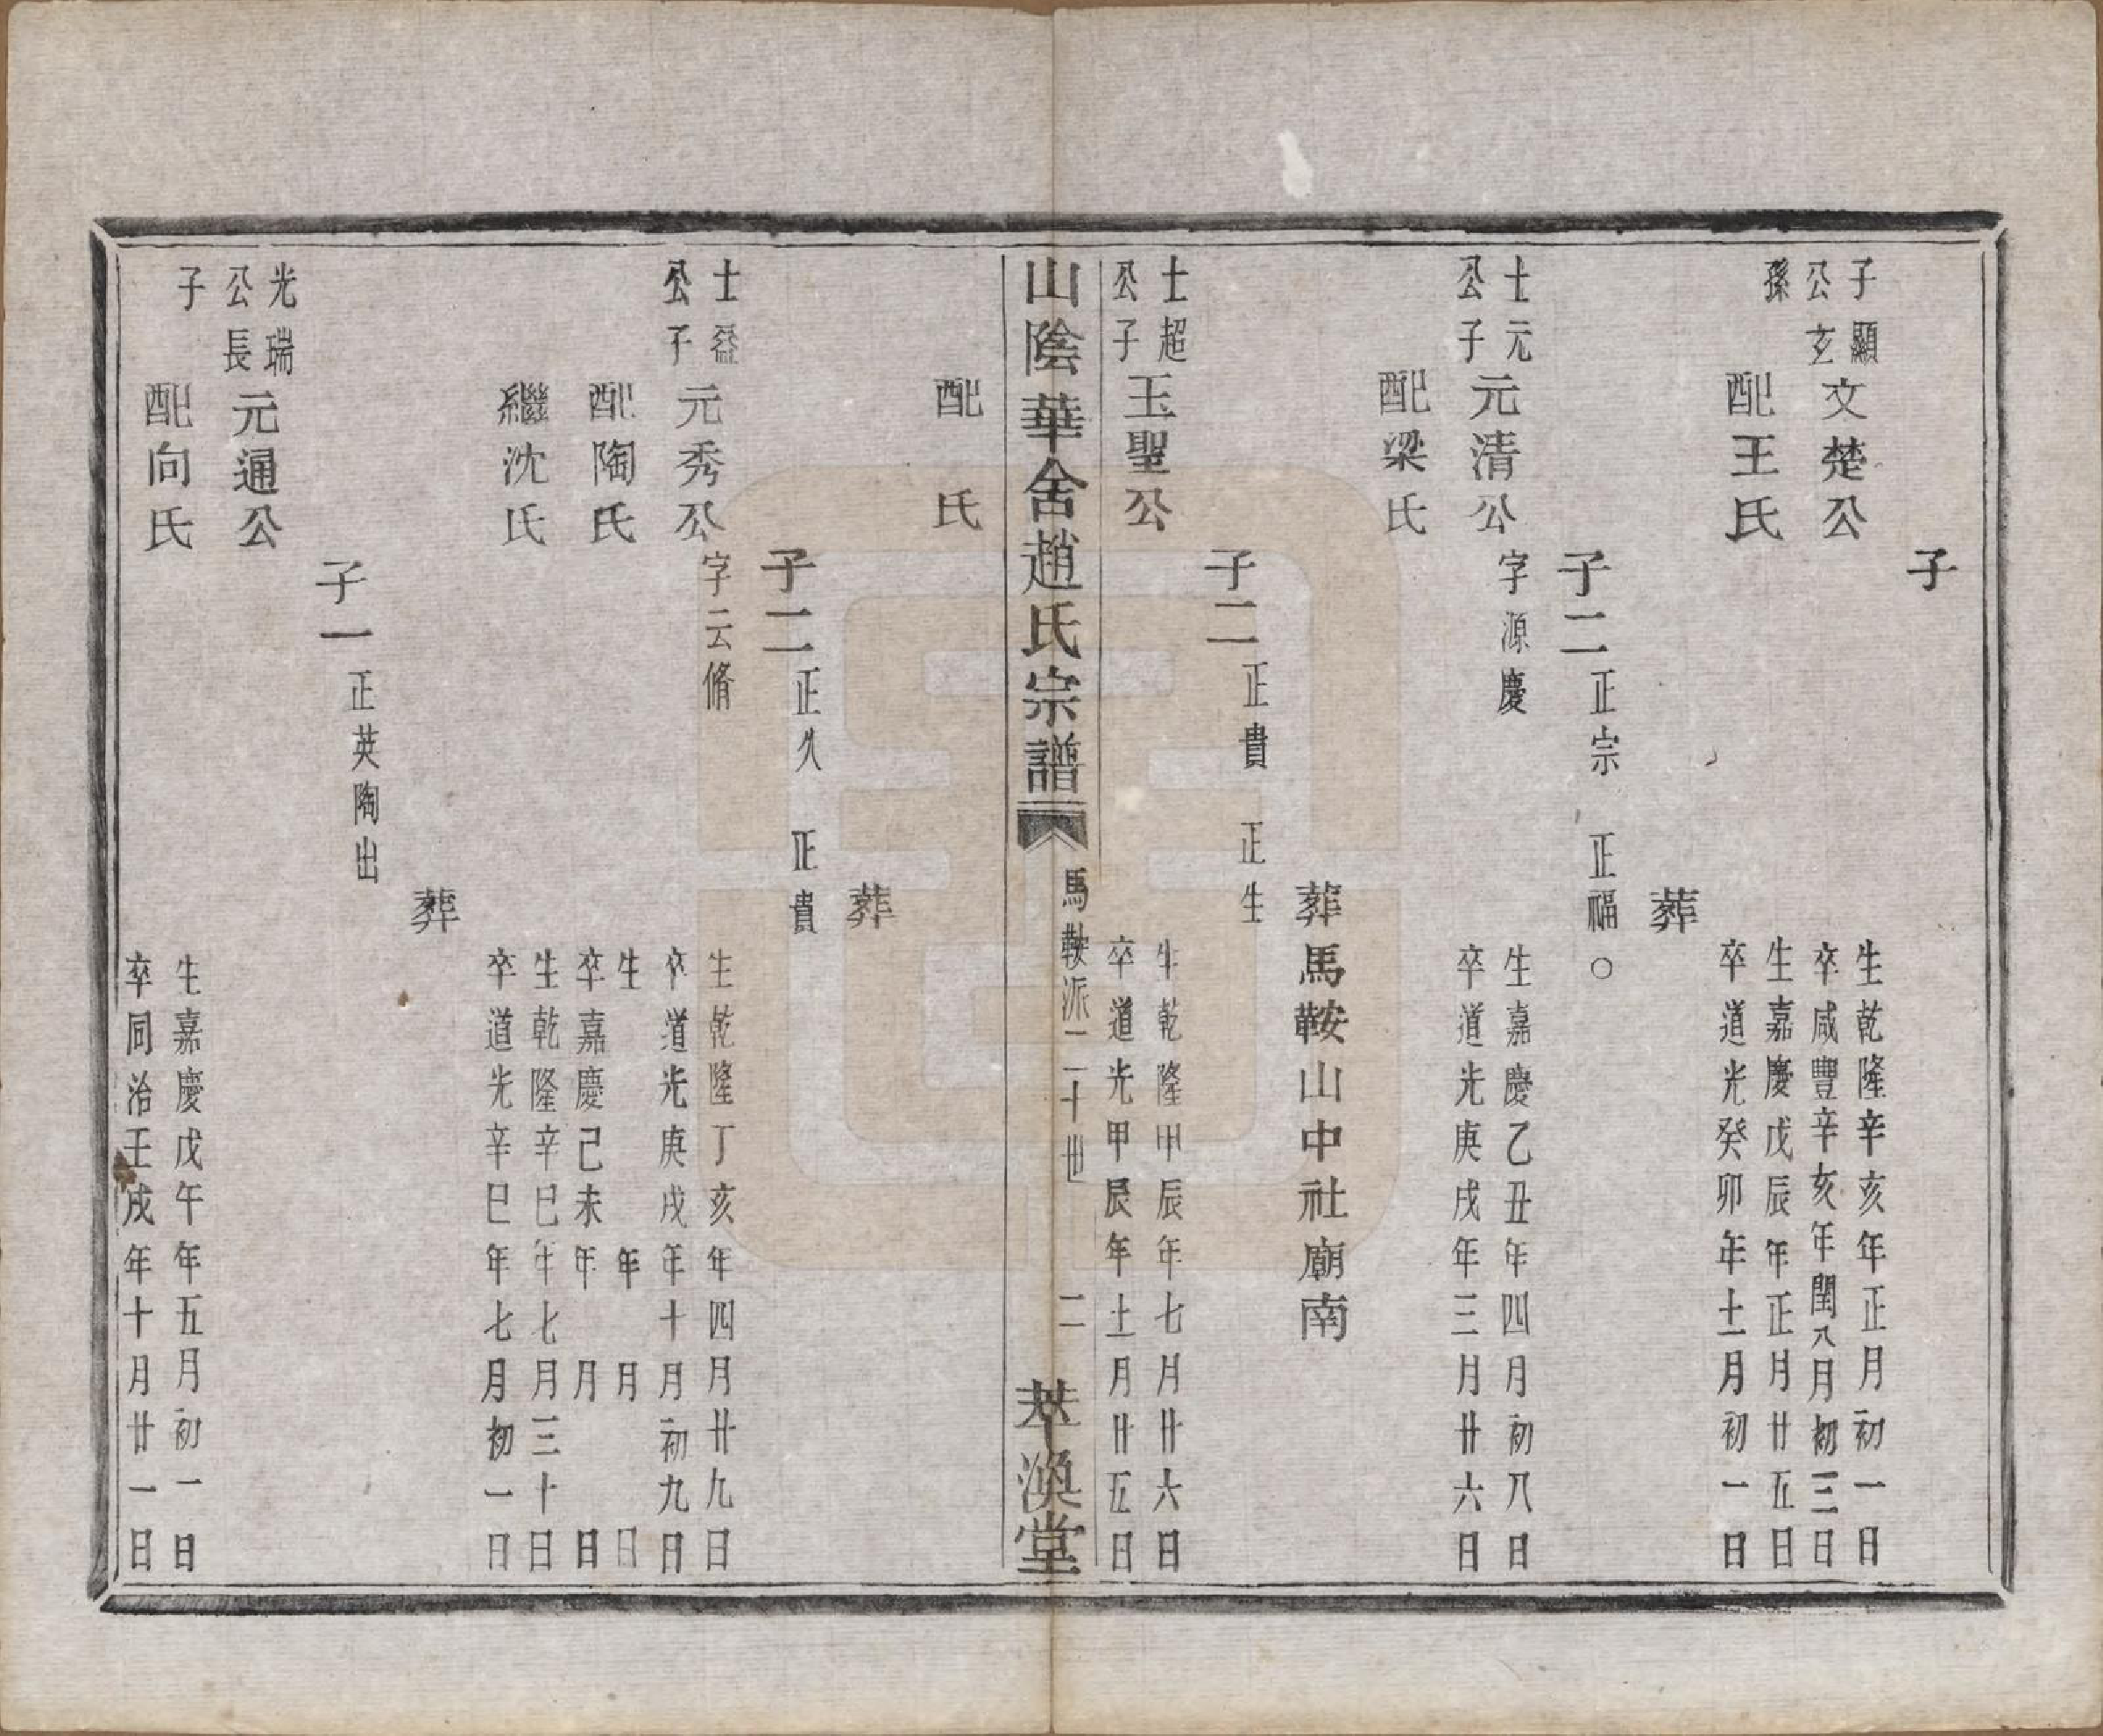 子
子顯公玄孫
文楚公
生乾隆辛亥年正月初一日
卒咸豐辛亥年閏八月初三日
配王氏
生嘉慶戊辰年正月廿五日
卒道光癸卯年十一月初一日
葬
子二 正宗 正福○
士元公子
元清公 字源慶
生嘉慶乙丑年四月初八日
卒道光庚戌年三月廿六日
配梁氏
葬馬鞍山中社廟南
子二 正貴 正生
士超公子
玉聖公
生乾隆甲辰年七月廿六日
卒道光甲辰年十一月廿五日
山陰華舍趙氏宗譜 馬鞍派二十世 二 萃渙堂
配 氏
葬
子二 正久 正貴
士益公子
元秀公 字云脩
生乾隆丁亥年四月廿九日
卒道光庚戌年十月初九日
配陶氏
生 年 月 日
卒嘉慶己未年 月 日
繼沈氏
生乾隆辛巳年七月三十日
卒道光辛巳年七月初一日
葬
子一 正英陶出
光瑞公長子
元通公
生嘉慶戊午年五月初一日
配向氏
卒同治壬戌年十月廿一日